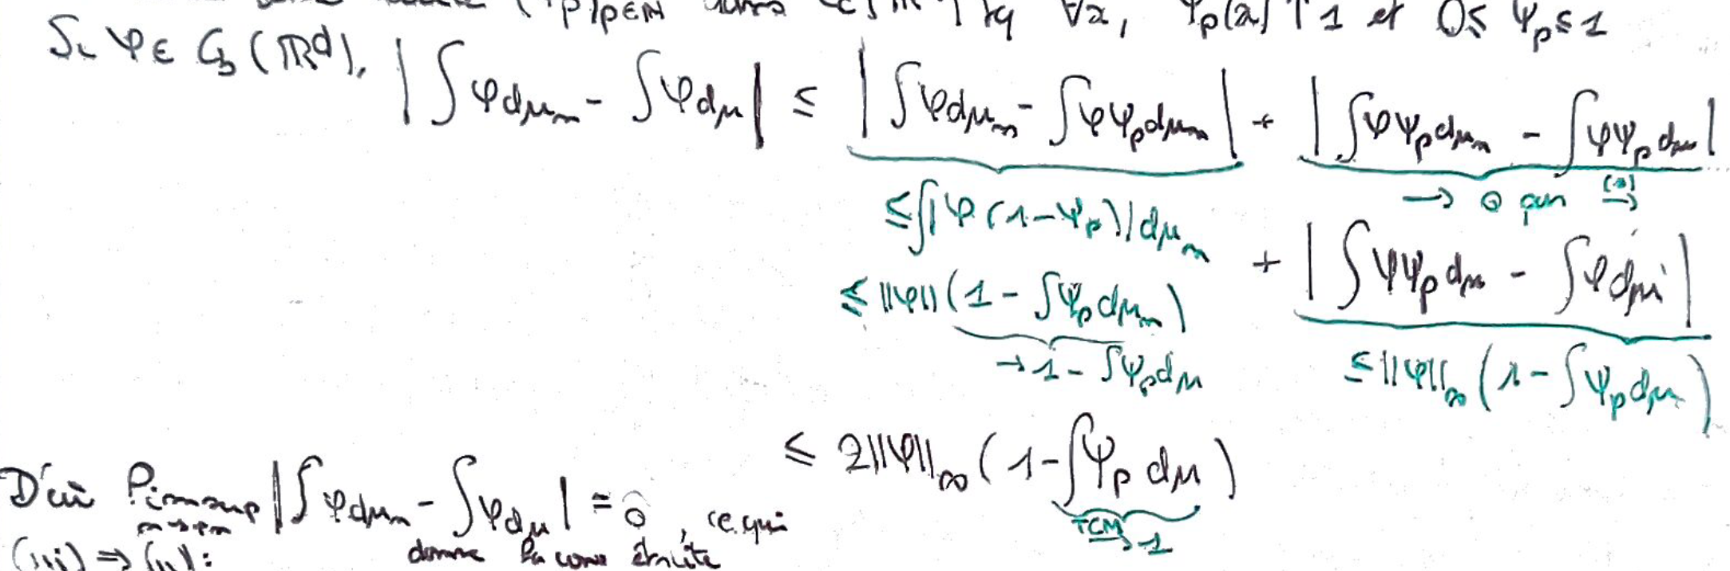 (ψ_p)_{p∈ℕ} dans tq ∀x, ψ_p(x) ↑ 1 et 0 ≤ ψ_p ≤ 1
Si φ ∈ C_b(ℝ^d), |∫φdμ_n - ∫φdμ| ≤ |∫φdμ_n - ∫φψ_p dμ_n| + |∫φψ_p dμ_n - ∫φψ_p dμ|
≤ ∫|φ(1-ψ_p)|dμ_n → 0 par
≤ ||φ||(1 - ∫ψ_p dμ_n) + |∫φψ_p dμ - ∫φdμ|
→ 1 - ∫ψ_p dμ ≤ ||φ||_∞ (1 - ∫ψ_p dμ)
≤ 2||φ||_∞ (1 - ∫ψ_p dμ)
TCM → 1
D'où limsup_{n→+∞} |∫φdμ_n - ∫φdμ| = 0, ce qui
donne la conv étroite
(iii) ⇒ (ii) :